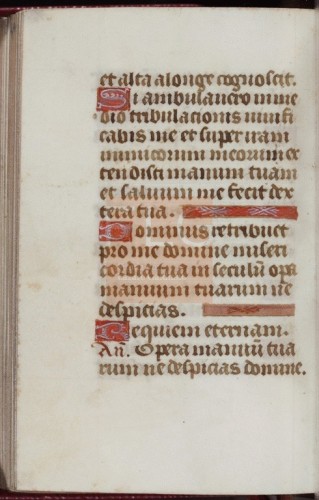 et alta a longe cognoscit.
Si ambulauero in me
dio tribulacionis uiuifi
cabis me et super iram
inimicorum meorum ex
tendisti manum tuam
et saluum me fecit dex
tera tua.
Dominus retribuet
pro me domine miseri
cordia tua in seculū opa
manuum tuarum ne
despicias.
Requiem eternam.
An̄. Opera manuū tua
rum ne despicias domine.